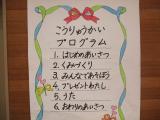 こうりゅうかい
プログラム
1. はじめのあいさつ
2. くみづくり
3. みんなであそぼう
4. プレゼントわたし
5. うた
6. おわりのあいさつ